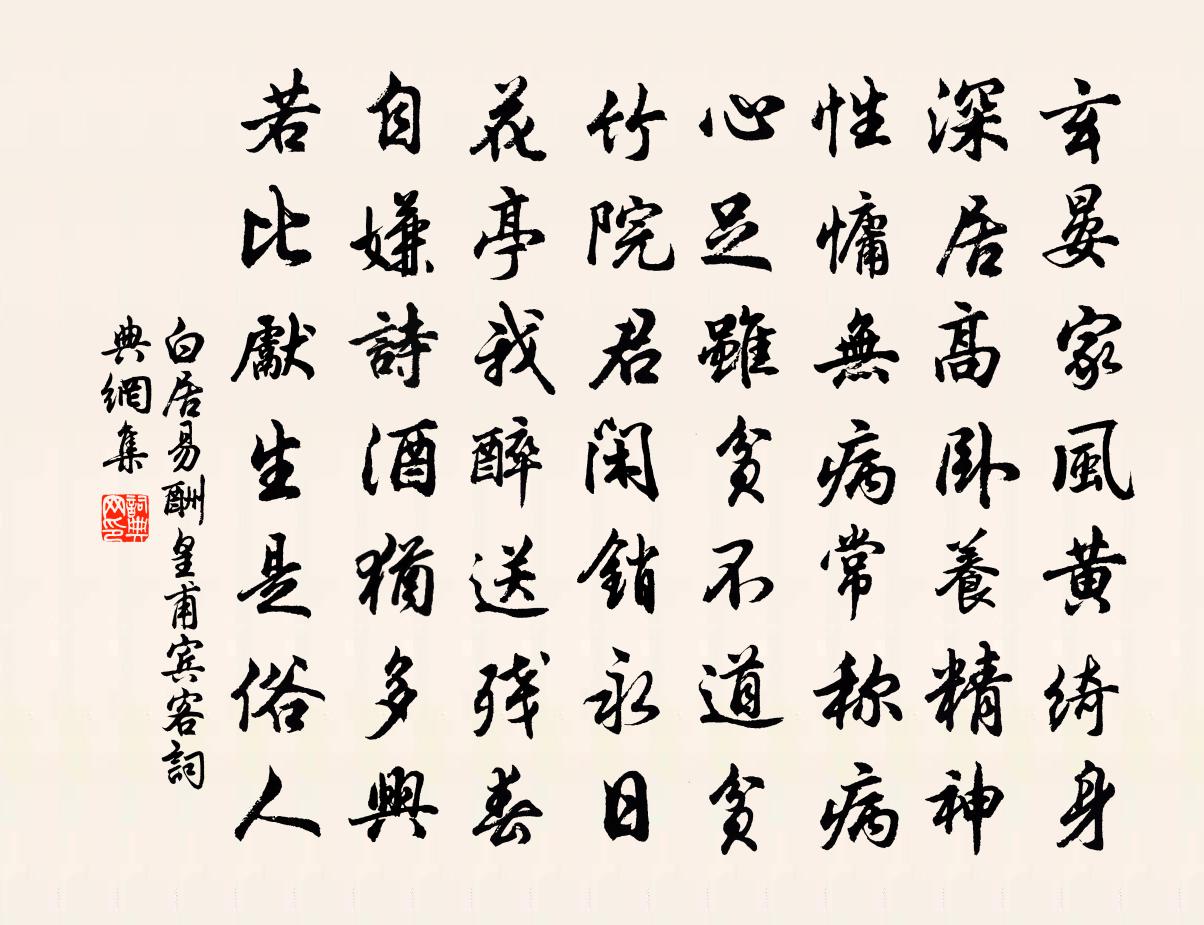 玄晏家風黄綺身
深居高卧養精神
性慵無病常称病
心足雖貧不道貧
竹院君閑銷永日
花亭我醉送残春
自嫌詩酒猶多興
若比獻生是俗人
白居易酬皇甫宾客詞
典網集
詞典
网印